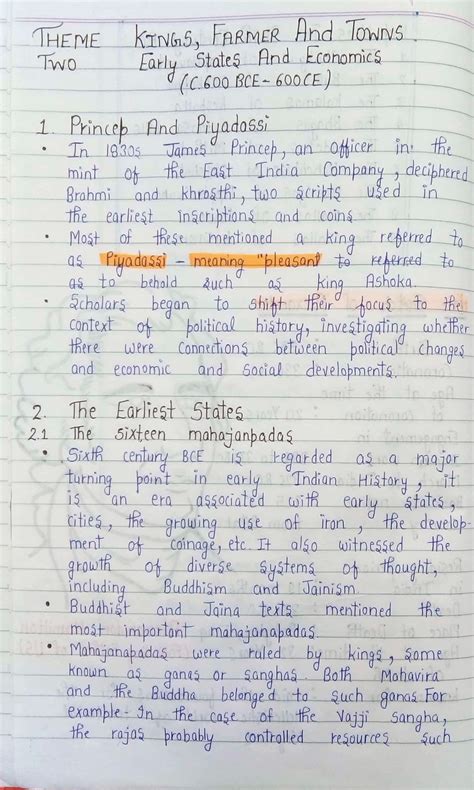 THEME KINGS, FARMER AND TOWNS
TWO Early States And Economics
(C.600 BCE - 600CE)
1. Princep And Piyadassi
• In 1830s James Princep, an officer in the
mint of the East India Company, deciphered
Brahmi and khrosthi, two scripts used in
the earliest inscriptions and coins.
• Most of these mentioned a king referred to
as Piyadassi - meaning "pleasant to referred to
as to behold such as king Ashoka.
• Scholars began to shift their focus to the
context of political history, investigating whether
there were connections between political changes
and economic and social developments.
2. The Earliest States
2.1 The sixteen mahajanpadas
• Sixth century BCE is regarded as a major
turning point in early Indian History, it
is an era associated with early states,
cities, the growing use of iron, the develop-
ment of coinage, etc. It also witnessed the
growth of diverse systems of thought,
including Buddhism and Jainism.
• Buddhist and Jaina texts mentioned the
most important mahajanapadas.
• Mahajanapadas were ruled by kings, some
known as ganas or sanghas. Both Mahavira
and the Buddha belonged to such ganas. For
example - In the case of the Vajji sangha,
the rajas probably controlled resources such